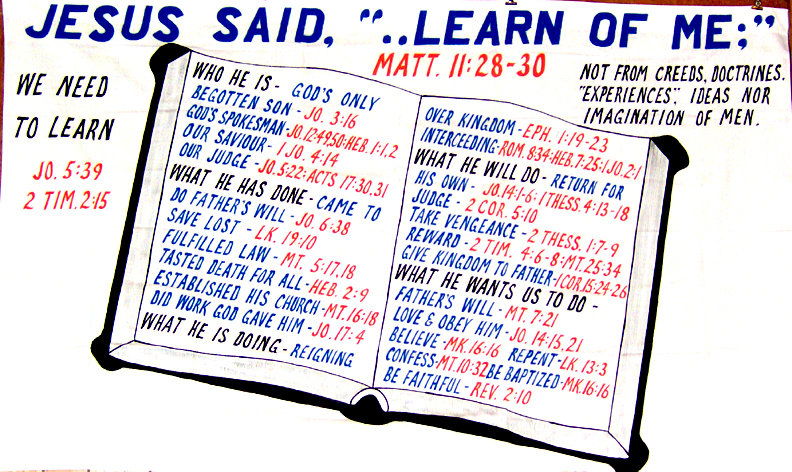 JESUS SAID, "..LEARN OF ME;"
MATT. 11:28-30
WE NEED
TO LEARN
JO. 5:39
2 TIM. 2:15
NOT FROM CREEDS, DOCTRINES,
"EXPERIENCES", IDEAS NOR
IMAGINATION OF MEN.
WHO HE IS - GOD'S ONLY
BEGOTTEN SON - JO. 3:16
GOD'S SPOKESMAN - JO. 12:49,50: HEB. 1:1,2
OUR SAVIOUR - 1 JO. 4:14
OUR JUDGE - JO. 5:22: ACTS 17:30,31
WHAT HE HAS DONE - CAME TO
DO FATHER'S WILL - JO. 6:38
SAVE LOST - LK. 19:10
FULFILLED LAW - MT. 5:17,18
TASTED DEATH FOR ALL - HEB. 2:9
ESTABLISHED HIS CHURCH - MT. 16:18
DID WORK GOD GAVE HIM - JO. 17:4
WHAT HE IS DOING - REIGNING
OVER KINGDOM - EPH. 1:19-23
INTERCEEDING - ROM. 8:34: HEB. 7:25: 1 JO. 2:1
WHAT HE WILL DO - RETURN FOR
HIS OWN - JO. 14:1-6: 1 THESS. 4:13-18
JUDGE - 2 COR. 5:10
TAKE VENGEANCE - 2 THESS. 1:7-9
REWARD - 2 TIM. 4:6-8: MT. 25:34
GIVE KINGDOM TO FATHER - 1 COR. 15:24-26
WHAT HE WANTS US TO DO -
FATHER'S WILL - MT. 7:21
LOVE & OBEY HIM - JO. 14:15,21
BELIEVE - MK. 16:16 REPENT - LK. 13:3
CONFESS - MT. 10:32 BE BAPTIZED - MK. 16:16
BE FAITHFUL - REV. 2:10